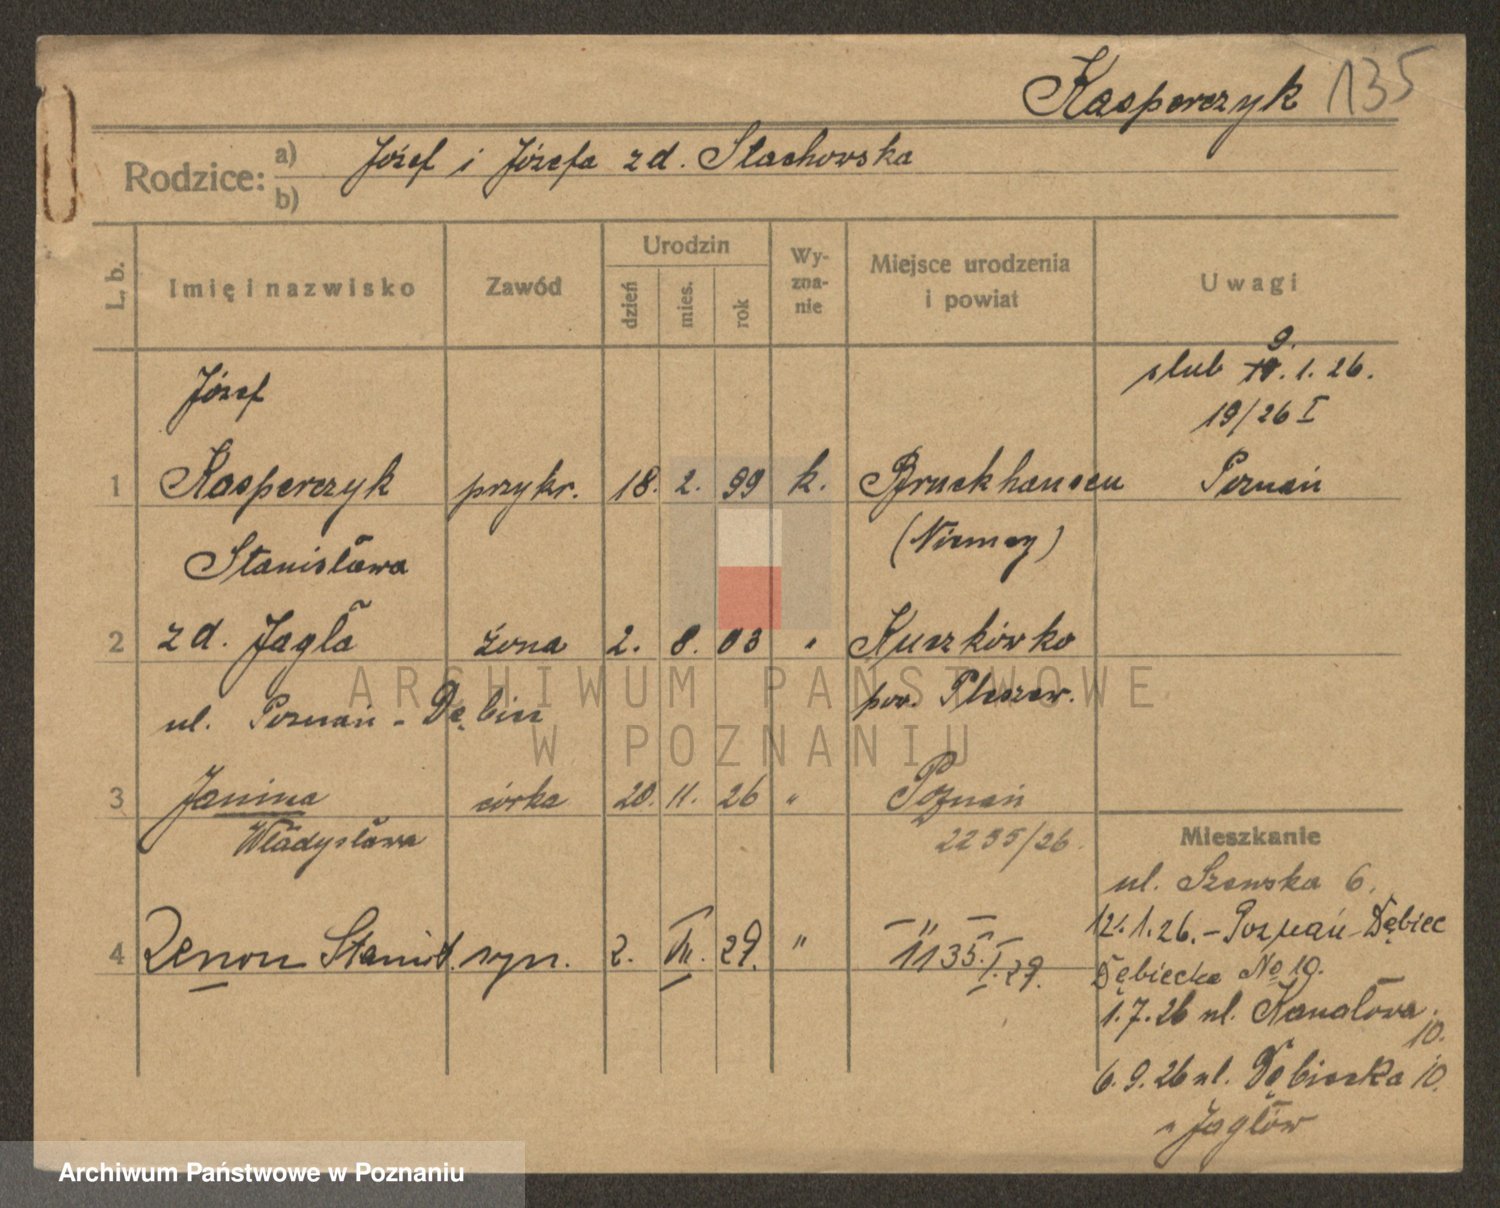 Kasperczyk 135
Rodzice: a) Józef i Józefa zd. Stachowska
b)
L. b. Imię i nazwisko Zawód Urodzin dzień mies. rok Wy-zna-nie Miejsce urodzenia i powiat Uwagi
Józef ślub 9. 1. 26.
19/26 I
1 Kasperczyk przykr. 18. 2. 99 k. Bruckhausen Poznań
Stanisława (Niemcy)
2 zd. Jagła żona 2. 8. 03 " Kuczkówko
ul. Poznań - Dębiec pow. Pleszew.
3 Janina córka 20. 11. 26 " Poznań
Władysława 2295/26.
Mieszkanie
ul. Szewska 6.
12. 1. 26. - Poznań - Dębiec
4 Zenon Stanisł. syn. 2. VII. 29. " — " —
1135. I. 29.
Dębiecka No 10.
1. 7. 26 ul. Kanałowa 10.
6. 9. 26 ul. Dębiecka 10.
u Jagłów
ARCHIWUM PAŃSTWOWE
W POZNANIU
Archiwum Państwowe w Poznaniu